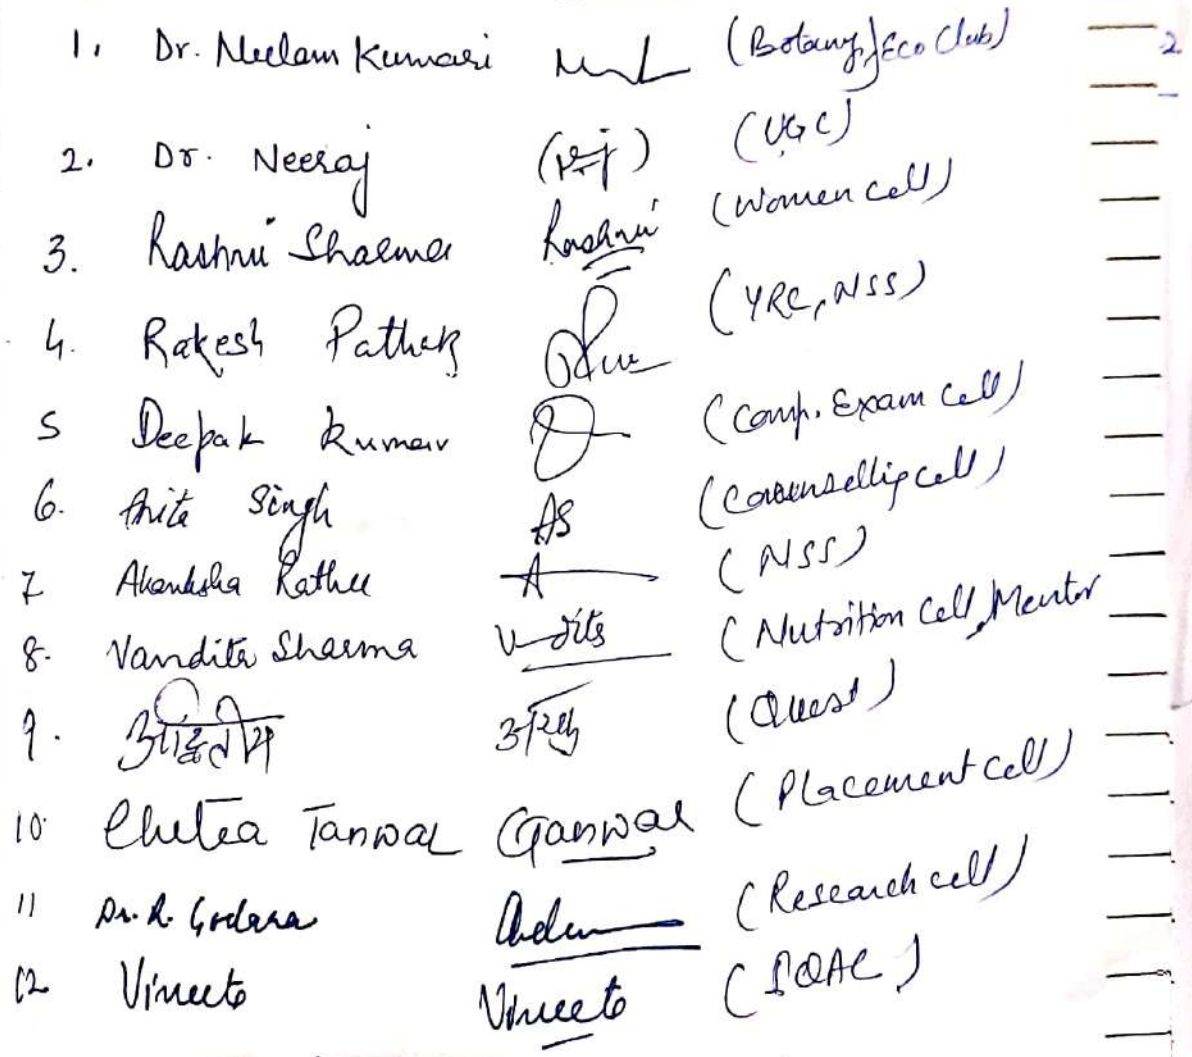 1. Dr. Neelam Kumari (Botany, Eco Club)
2. Dr. Neeraj (UGC)
3. Rashmi Sharma Rashmi (Women cell)
4. Rakesh Pathak (YRC, NSS)
5 Deepak Kumar (Comp. Exam Cell)
6. Anita Singh AS (Counselling cell)
7 Akanksha Rathee A (NSS)
8. Vandita Sharma V-dita (Nutrition Cell, Mentor
9. अद्वितीय (Quest)
10 Chitra Tanwar CTanwar (Placement Cell)
11 Dr. R. Godara (Research cell)
12 Vineeta Vineeta (IQAC)